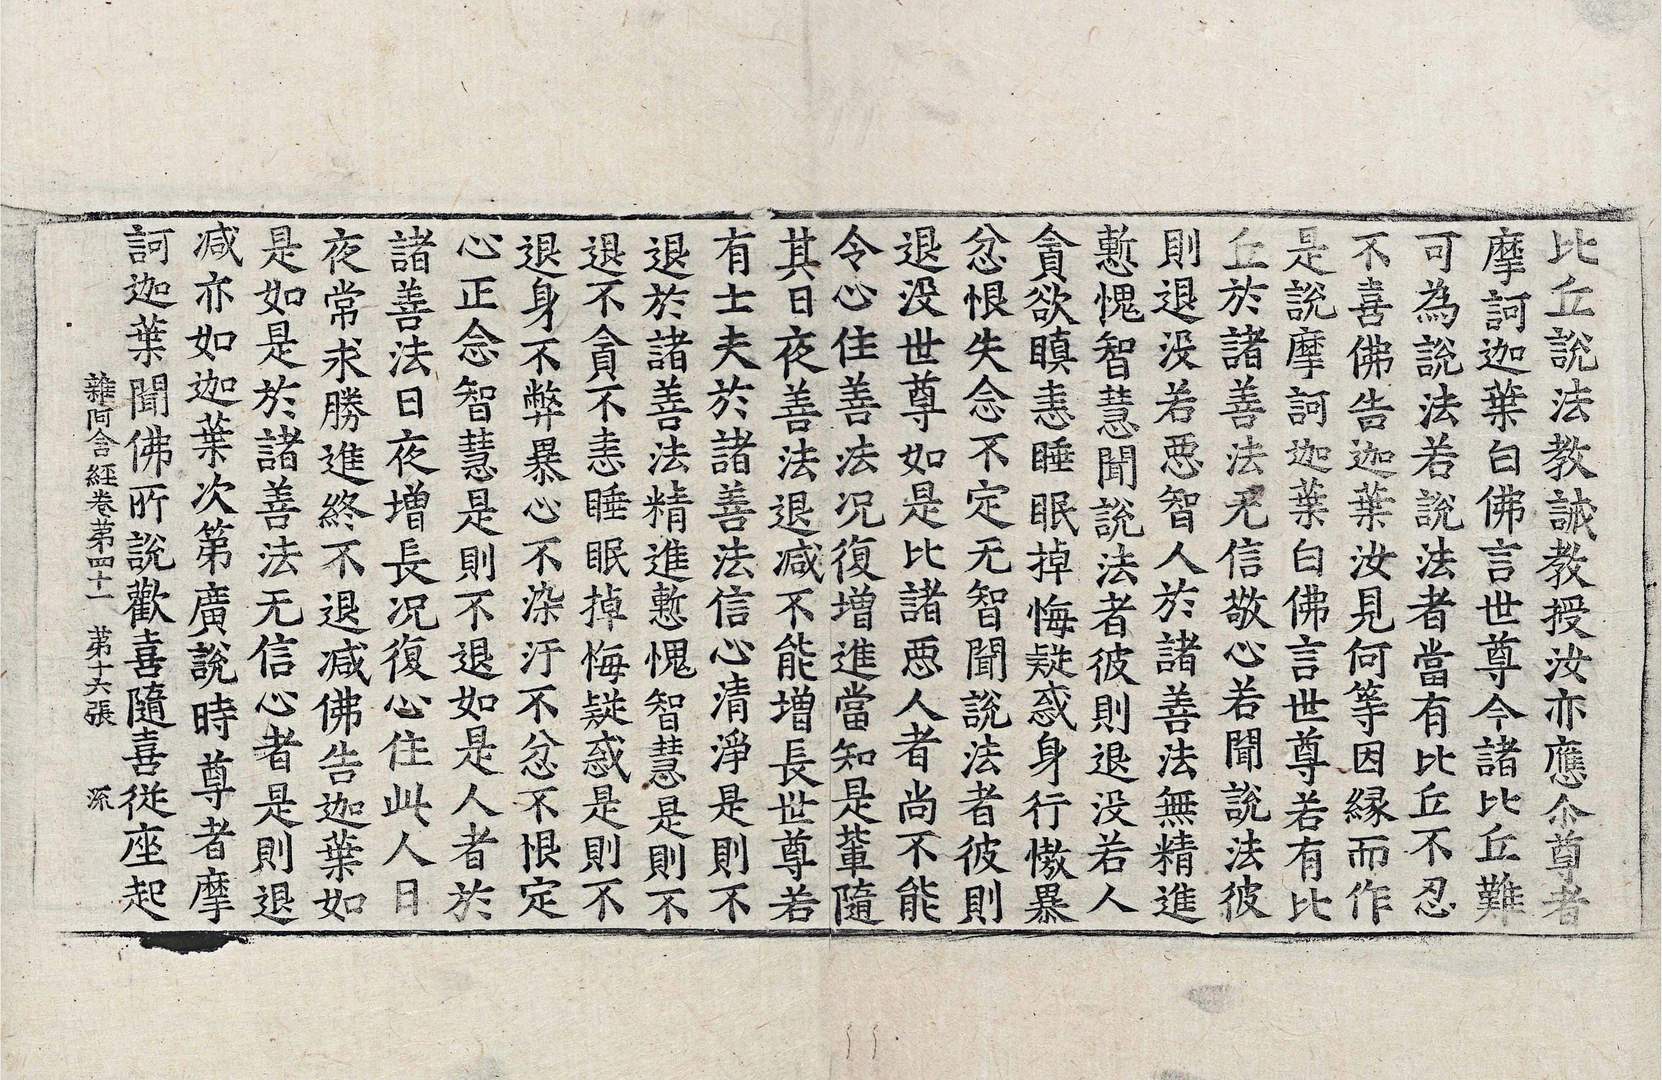 比丘說法教誡教授汝亦應尒尊者
摩訶迦葉白佛言世尊今諸比丘難
可為說法若說法者當有比丘不忍
不喜佛告迦葉汝見何等因縁而作
是說摩訶迦葉白佛言世尊若有比
丘於諸善法无信敬心若聞說法彼
則退没若惡智人於諸善法無精進
慙愧智慧聞說法者彼則退没若人
貪欲瞋恚睡眠掉悔疑惑身行慠暴
忿恨失念不定无智聞說法者彼則
退没世尊如是比諸惡人者尚不能
令心住善法况復增進當知是輩隨
其日夜善法退减不能增長世尊若
有士夫於諸善法信心清淨是則不
退於諸善法精進慙愧智慧是則不
退不貪不恚睡眠掉悔疑惑是則不
退身不弊暴心不染汙不忿不恨定
心正念智慧是則不退如是人者於
諸善法日夜增長况復心住此人日
夜常求勝進終不退减佛告迦葉如
是如是於諸善法无信心者是則退
减亦如迦葉次第廣說時尊者摩
訶迦葉聞佛所說歡喜隨喜從座起
雜阿含經卷第四十一 第十六張 流